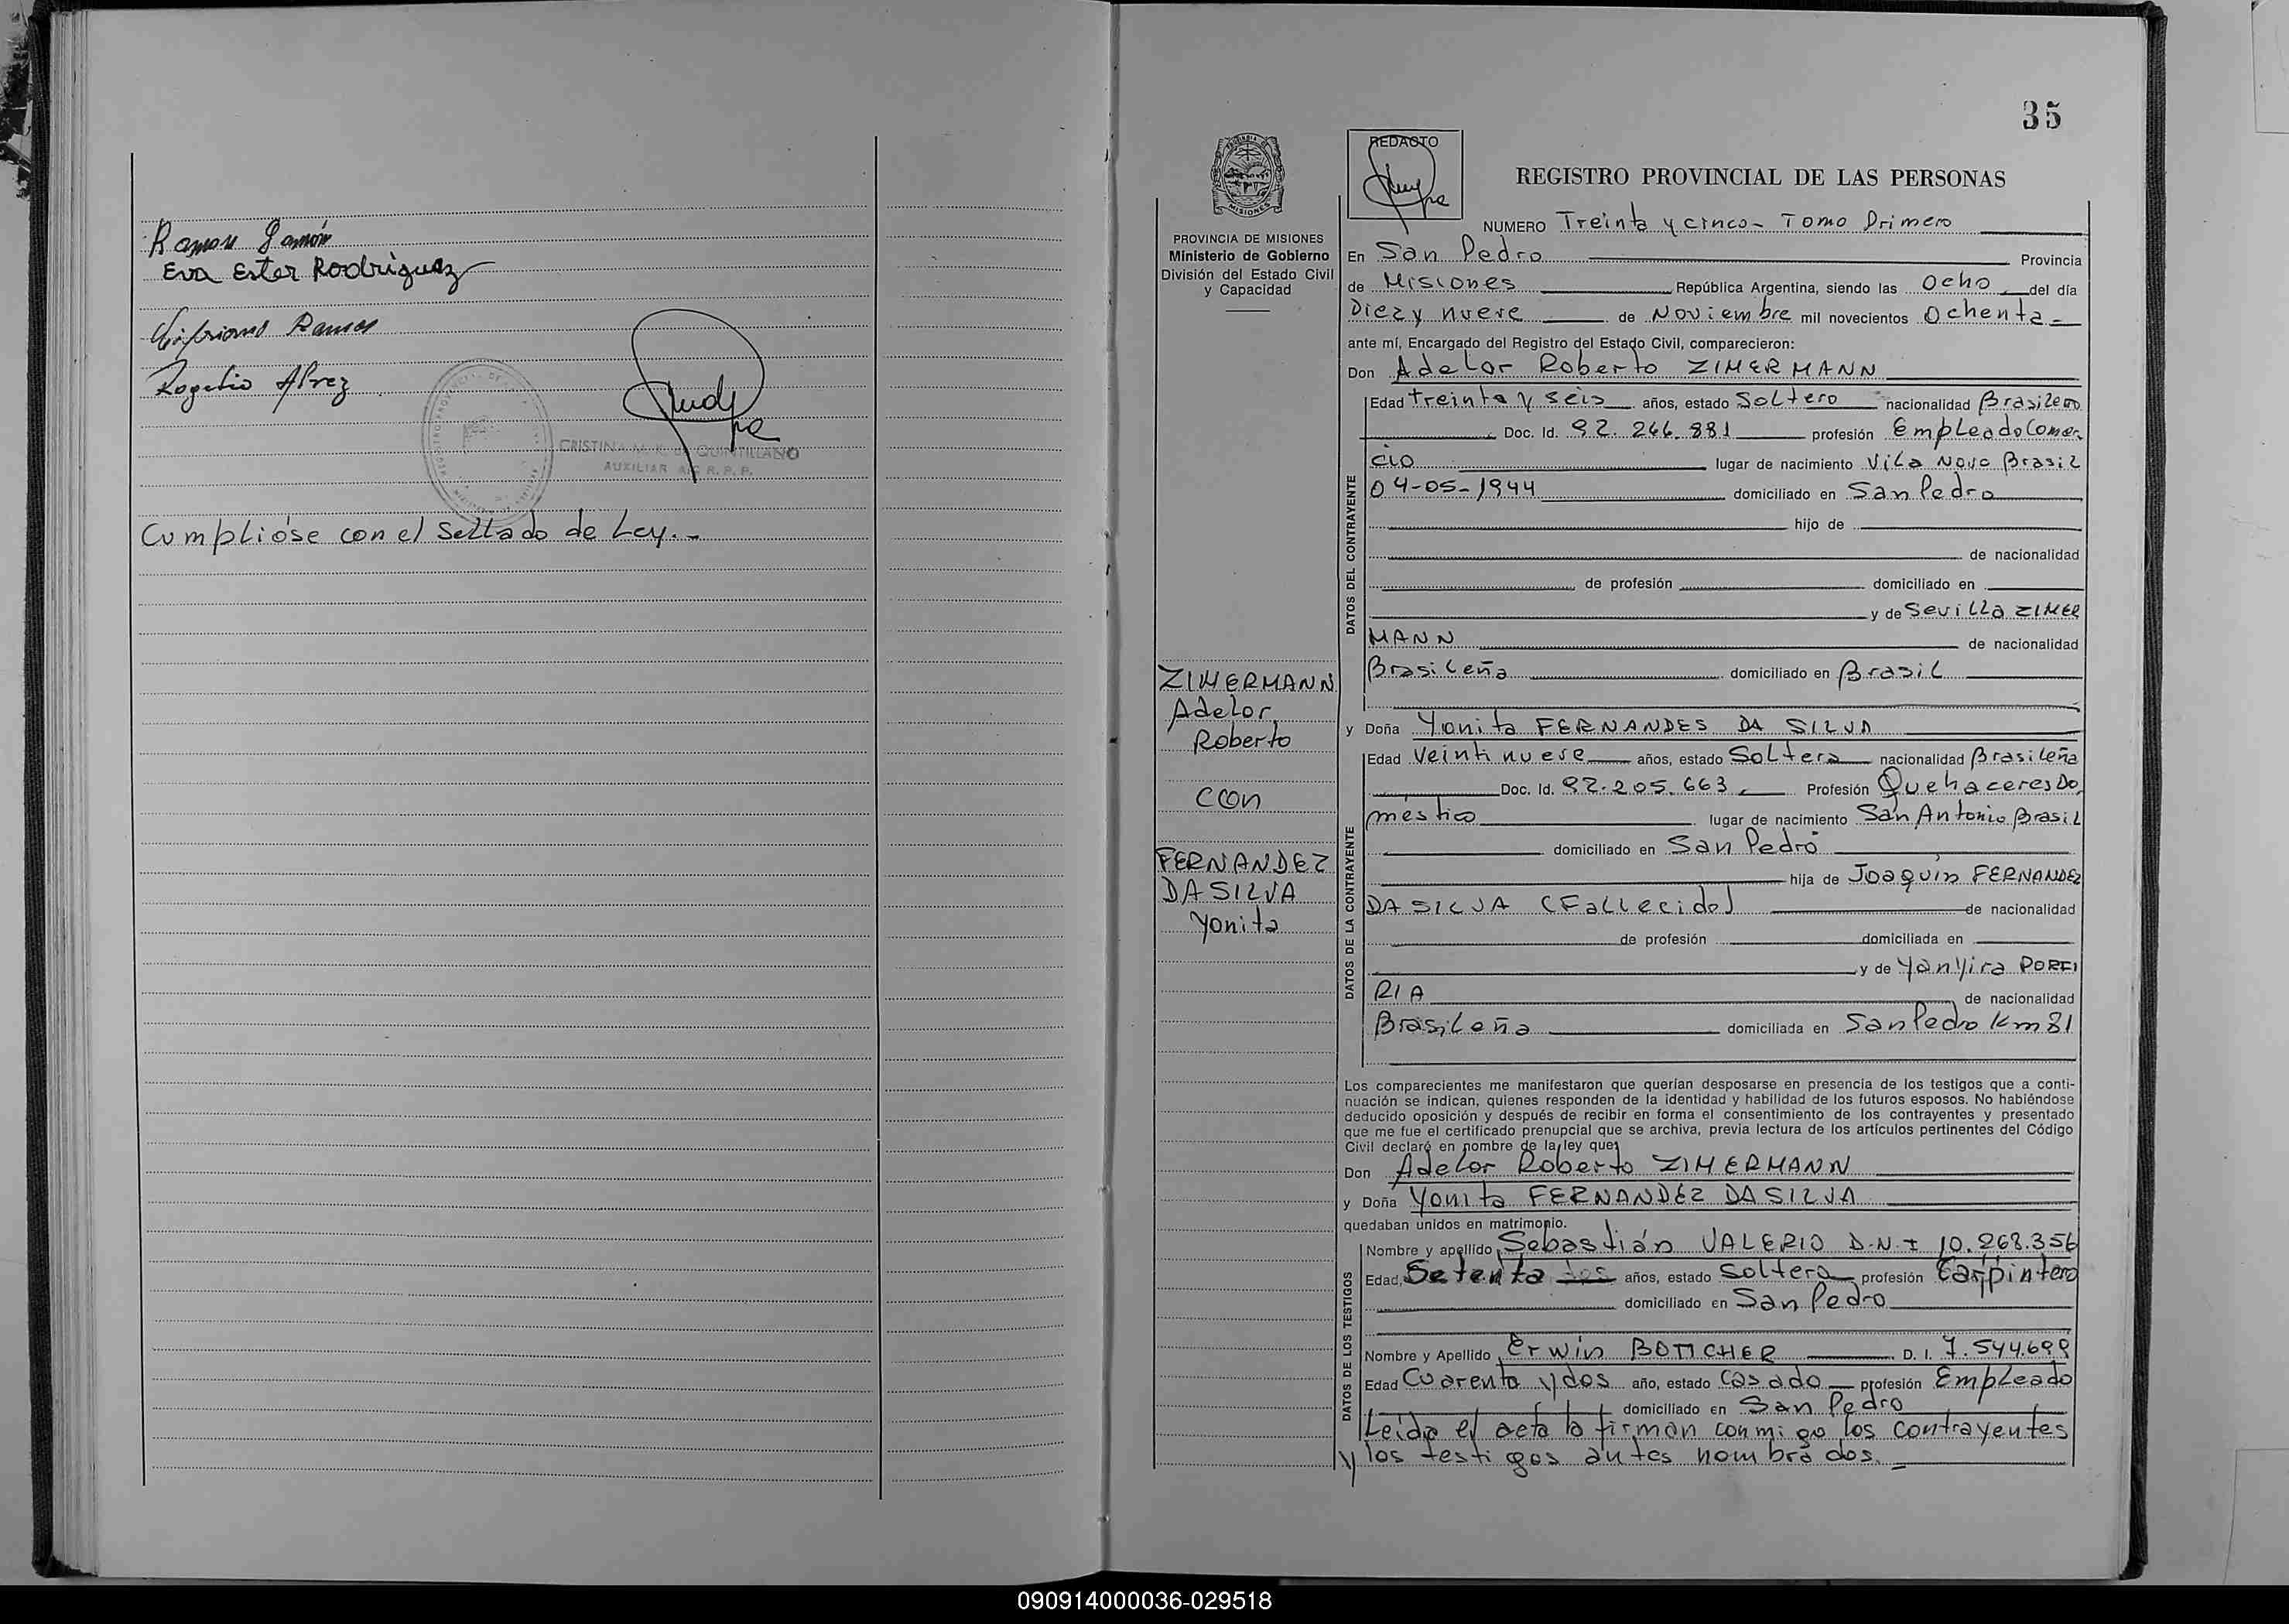 Ramon Ramón
Eva Ester Rodriguez
Cipriano Ramos
Rogelio Alvez
CRISTINA M. K. de QUINTILLANO
AUXILIAR R. P. P.
Cumplióse con el Sellado de Ley.-
35
REDACTO
REGISTRO PROVINCIAL DE LAS PERSONAS
MISIONES
PROVINCIA DE MISIONES
Ministerio de Gobierno
División del Estado Civil
y Capacidad
NUMERO Treinta y cinco - Tomo Primero
En San Pedro Provincia
de Misiones República Argentina, siendo las Ocho del día
Diez y nueve de Noviembre mil novecientos Ochenta-
ante mí, Encargado del Registro del Estado Civil, comparecieron:
Don Adelor Roberto ZIMERMANN
DATOS DEL CONTRAYENTE
Edad treinta y seis años, estado Soltero nacionalidad Brasilero
Doc. Id. 92.266.881 profesión Empleado Comer
cio lugar de nacimiento Vila Nova Brasil
04-05-1944 domiciliado en San Pedro
hijo de
de nacionalidad
de profesión domiciliado en
y de Sevilla ZIMER
MANN de nacionalidad
Brasileña domiciliado en Brasil
ZIMERMANN
Adelor
Roberto
con
FERNANDEZ
DA SILVA
Yonita
y Doña Yonita FERNANDES DA SILVA
DATOS DE LA CONTRAYENTE
Edad Veintinueve años, estado Soltera nacionalidad Brasileña
Doc. Id. 92.205.663 Profesión Quehaceres Do
méstico lugar de nacimiento San Antonio Brasil
domiciliado en San Pedro
hija de Joaquín FERNANDEZ
DA SILVA (Fallecido) de nacionalidad
de profesión domiciliada en
y de Yanyira PORFI
RIA de nacionalidad
Brasileña domiciliada en San Pedro Km 81
Los comparecientes me manifestaron que querían desposarse en presencia de los testigos que a conti-
nuación se indican, quienes responden de la identidad y habilidad de los futuros esposos. No habiéndose
deducido oposición y después de recibir en forma el consentimiento de los contrayentes y presentado
que me fue el certificado prenupcial que se archiva, previa lectura de los artículos pertinentes del Código
Civil declaré en nombre de la ley que:
Don Adelor Roberto ZIMERMANN
y Doña Yonita FERNANDEZ DA SILVA
quedaban unidos en matrimonio.
DATOS DE LOS TESTIGOS
Nombre y apellido Sebastián VALERIO D.N.I 10.268.356
Edad, Setenta años, estado Soltero profesión Carpintero
domiciliado en San Pedro
Nombre y Apellido Erwin BOTTCHER D. I. 7.544.699
Edad Cuarenta y dos año, estado Casado profesión Empleado
domiciliado en San Pedro
Leida el acta la firman conmigo los contrayentes
y los testigos antes nombrados.
090914000036-029518